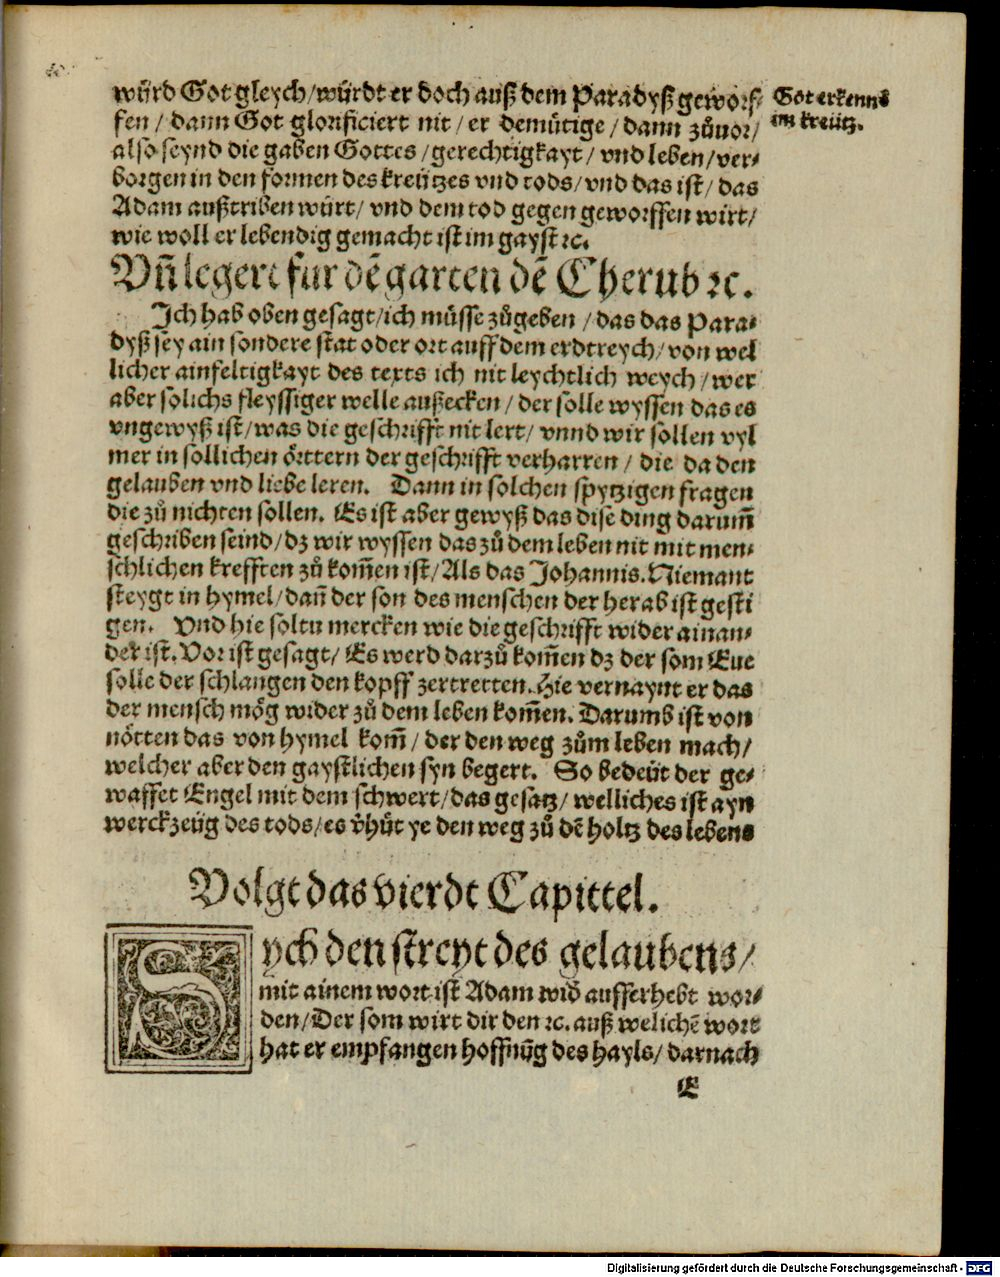 würd Got gleych/würdt er doch auß dem Paradyß geworf-
fen / dann Got glorificiert nit / er demütige / dann zůuor/
also seynd die gaben Gottes /gerechtigkayt/ vnd leben/ver-
borgen in den formen des kreützes vnd tods/vnd das ist/ das
Adam außtriben würt/ vnd dem tod gegen geworffen wirt/
wie woll er lebendig gemacht ist im gayst ꝛc.
Got erkennt
im kreütz.
Vñ legert für dē garten dē Cherub ꝛc.
Ich hab oben gesagt/ich müsse zůgeben /das das Para-
dyß sey ain sondere stat oder ort auff dem erdtreych/von wel
licher ainfeltigkayt des texts ich nit leychtlich weych /wer
aber solichs fleyssiger welle außecken/ der solle wyssen das es
vngewyß ist/was die geschrifft nit lert/ vnnd wir sollen vyl
mer in sollichen örttern der geschrifft verharren / die da den
gelauben vnd liebe leren. Dann in solchen spytzigen fragen
die zů nichten sollen. Es ist aber gewyß das dise ding darum̄
geschriben seind/dz wir wyssen das zů dem leben nit mit men-
schlichen krefften zů kom̄en ist/Als das Johannis. Niemant
steygt in hymel/dañ der son des menschen der herab ist gesti
gen. Vnd hie soltu mercken wie die geschrifft wider ainan-
der ist. Vor ist gesagt/ Es werd darzů kom̄en dz der som Eue
solle der schlangen den kopff zertretten. Hie vernaynt er das
der mensch mög wider zů dem leben kom̄en. Darumb ist von
nötten das von hymel kom̄ / der den weg zům leben mach/
welcher aber den gaystlichen syn begert. So bedeüt der ge-
waffet Engel mit dem schwert/das gesatz/ welliches ist ayn
werckzeüg des tods/es v̄hüt ye den weg zů dē holtz des lebens
Volgt das vierdt Capittel.
Sych den streyt des gelaubens/
mit ainem wort ist Adam wid̄ aufferhebt wor-
den/Der som wirt dir den ꝛc. auß welichē wort
hat er empfangen hoffnūg des hayls/ darnach
E
Digitalisierung gefördert durch die Deutsche Forschungsgemeinschaft - DFG